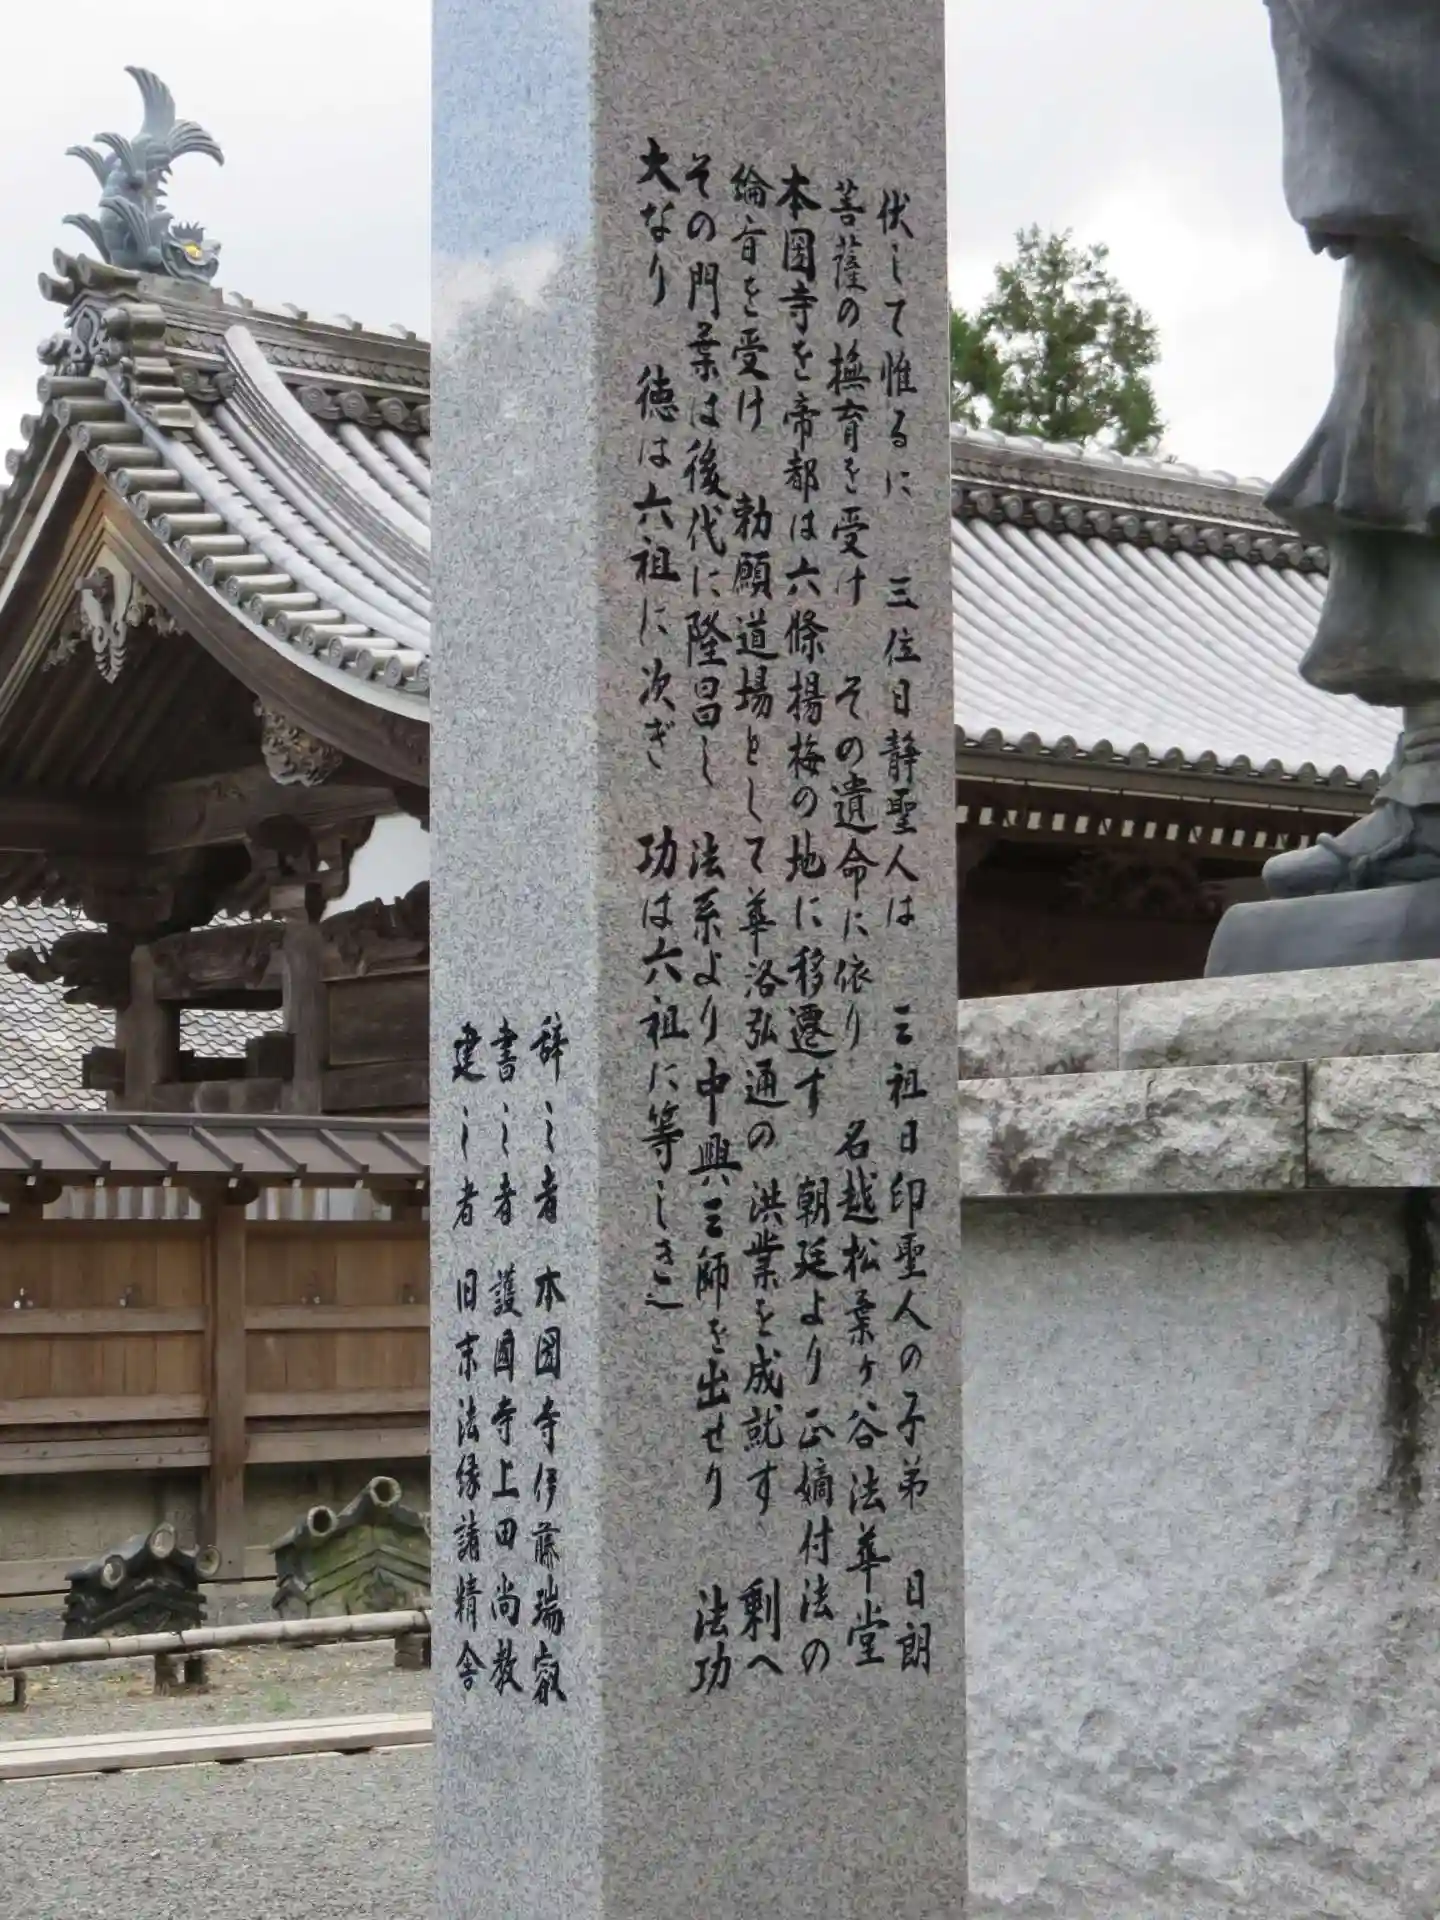 伏して惟るに　三位日静聖人は　三祖日印聖人の子弟　日朗
菩薩の撫育を受け　その遺命に依り　名越松葉ヶ谷法華堂
本圀寺を帝都は六條揚梅の地に移遷す　朝廷より正嫡付法の
綸旨を受け　勅願道場として華洛弘通の　洪業を成就す　剰へ
その門葉は後代に隆昌し　法系より中興三師を出せり　法功
大なり　徳は六祖に次ぎ　功は六祖に等しき也
辞之者　本圀寺伊藤瑞叡
書之者　護國寺上田尚教
建之者　旧末法縁諸精舎